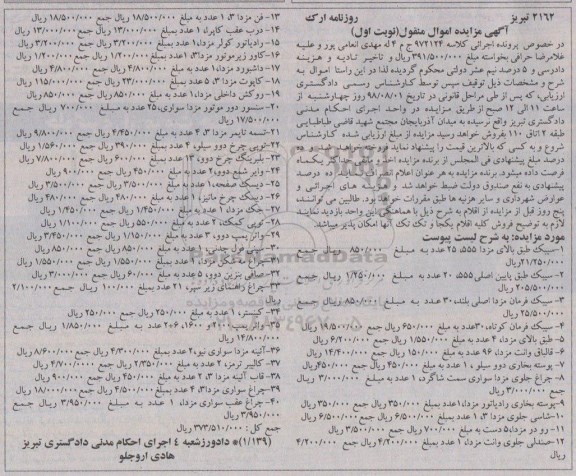 ۲۱۶۲ تبریز روزنامه ارک
آگهی مزایده اموال منقول(نوبت اول)
در خصوص پرونده اجرائی کلاسه ۹۷۲۱۲۴ ج م ۴ له مهدی انعامی پور و علیه
غلامرضا حرافی بخواسته مبلغ ۳۹۱/۵۰۰/۰۰۰ ریال و تاخیر تادیه و هزینه
دادرسی و ۵ درصد نیم عشر دولتی محکوم گردیده لذا در این راستا اموال به
شرح و مشخصات ذیل توقیف سپس توسط کارشناس رسمی دادگستری
ارزیابی، که پس از طی مراحل قانونی در تاریخ ۹۸/۰۸/۰۱ روز چهارشنبه از
ساعت ۱۱ الی ۱۲ صبح از طریق مزایده در واحد اجرای احکام مدنی
دادگستری تبریز واقع در سه راه میدان آذربایجان مجتمع شهید قاضی طباطبایی
طبقه ۲ اتاق ۱۱۰ بفروش خواهد رسید مزایده از مبلغ ارزیابی شده کارشناس
شروع و به کسی که بالاترین قیمت را پیشنهاد نماید
درصد مبلغ پیشنهادی فی المجلس از برنده مزایده اخذ و مابقی حداکثر یکماه
فرصت داده میشود. برنده مزایده به هر عنوان اعلام ده درصد
پیشنهادی به نفع صندوق دولت ضبط خواهد شد و هزینه های اجرائی و
عوارض شهرداری و سایر هزینه ها طبق مقررات خواهد بود. طالبین می توانند،
پنج روز قبل از مزایده از اقلام به شرح ذیل با هماهنگی این واحد بازدید نمایند
لازم به توضیح فروش کلیه اقلام یکجا و تک تک آنها امکان پذیر میباشد.
مورد مزایده: به شرح لیست پیوست
۱-سیبک طبق بالای مزدا ۵۵۵، ۲۵ عدد به مبلغ ۸۵۰/۰۰۰ ریال جمع
۲۱/۲۵۰/۰۰۰ ریال
۲- سیبک طبق پایین اصلی۵۵۵، ۲۰ عدد به مبلغ ۱/۲۵۰/۰۰۰ ریال جمع
۲۵/۰۰۰/۰۰۰ ریال
۳- سیبک فرمان مزدا اصلی بلند، ۳۰ عدد به مبلغ ۸۵۰/۰۰۰ ریال جمع
۲۵/۵۰۰/۰۰۰ ریال
۴- سیبک فرمان کوتاه، ۳۰عدد به مبلغ ۶۵۰/۰۰۰ ریال جمع ۱۹/۵۰۰/۰۰۰ ریال
۵- طبق بالای مزدا، ۴ عدد به مبلغ ۱/۵۵۰/۰۰۰ ریال جمع ۶/۲۰۰/۰۰۰ ریال
۶- قالپاق وانت مزدا، ۹۶ عدد به مبلغ ۱۵۰/۰۰۰ ریال جمع ۱۴/۴۰۰/۰۰۰ ریال
۷- پوسته بخاری دوو سیلو، ۱ عدد به مبلغ ۴۵۰/۰۰۰ ریال جمع ۴۵۰/۰۰۰ریال
۸- چراغ جلوی مزدا سواری سمت شاگرد، ۱ عدد به مبلغ ۳/۰۰۰/۰۰۰ ریال
جمع ۳/۰۰۰/۰۰۰ ریال
۹-پوسته بخاری رادیاتور مزدا،۱عدد بمبلغ ۳۵۰/۰۰۰ ریال جمع ۳۵۰/۰۰۰ ریال
۱۰-شاسی جلوی مزدا ۳، ۱ عدد بمبلغ ۶/۵۰۰/۰۰۰ ریال جمع ۶/۵۰۰/۰۰۰ ریال
۱۱- رو دور مزدا،۵ دست به مبلغ ۷۰۰/۰۰۰ ریال جمع ۳/۵۰۰/۰۰۰ ریال
۱۲-صندلی جلوی وانت مزدا، ۱ عدد بمبلغ ۴/۲۰۰/۰۰۰ ریال جمع ۴/۲۰۰/۰۰۰
ریال
۱۳- فن مزدا ۳، ۱ عدد به مبلغ ۱۸/۵۰۰/۰۰۰ ریال جمع ۱۸/۵۰۰/۰۰۰ ریال
۱۴- درب عقب کاپرا، ۱ عدد بمبلغ ۱۳/۰۰۰/۰۰۰ ریال جمع ۱۳/۰۰۰/۰۰۰ ریال
۱۵- رادیاتور کولر مزدا،۱ عدد بمبلغ ۳/۲۰۰/۰۰۰ ریال جمع ۳/۲۰۰/۰۰۰ ریال
۱۶-کاور زیرموتور مزدا۳، ۱عدد بمبلغ ۱/۲۰۰/۰۰۰ ریال جمع ۱/۲۰۰/۰۰۰ ریال
۱۷- داشبورد مزدا،۱ عدد به مبلغ ۴/۸۰۰/۰۰۰ ریال جمع ۴/۸۰۰/۰۰۰ ریال
۱۸- کاپوت مزدا ۳، ۵ عدد بمبلغ ۲۳/۰۰۰/۰۰۰ ریال جمع ۱۱۵/۰۰۰/۰۰۰ ریال
۱۹- روکش داخلی مزدا،۱ عدد به مبلغ ۸۵۰/۰۰۰ ریال جمع ۸۵۰/۰۰۰ ریال
۲۰- سنسور دور موتور مزدا سواری، ۲۵ عدد به مبلغ ۷۰۰/۰۰۰ ریال جمع
۱۷/۵۰۰/۰۰۰ ریال
۲۱-تسمه تایمر مزدا ۳، ۴ عدد به مبلغ ۲/۴۵۰/۰۰۰ ریال جمع ۹/۸۰۰/۰۰۰ ریال
۲۲-توپی چرخ دوو سیلو، ۴ عدد بمبلغ ۳۹۰/۰۰۰ ریال جمع ۱/۵۶۰/۰۰۰ ریال
۲۳-بلبرینگ چرخ دوو، ۱۳ عدد بمبلغ ۶۰۰/۰۰۰ ریال جمع ۷/۸۰۰/۰۰۰ ریال
۲۴-وایر شمع دوو،۲ عدد به مبلغ ۴۵۰/۰۰۰ ریال جمع ۹۰۰/۰۰۰ ریال
۲۵- دیسک صفحه،۱ عدد به مبلغ ۳/۵۰۰/۰۰۰ ریال جمع ۳/۵۰۰/۰۰۰ ریال
۲۶- دیسک چرخ ماتیز، ۱ عدد به مبلغ ۴۸۰/۰۰۰ ریال جمع ۴۸۰/۰۰۰ ریال
۲۷-جک مزدا، ۱ عدد به مبلغ ۱/۴۵۰/۰۰۰ ریال جمع ۱/۴۵۰/۰۰۰ ریال
۲۸- توپی کمک، ۲ عدد به مبلغ ۵۵۰/۰۰۰ ریال جمع ۱/۱۰۰/۰۰۰ ریال
۲۹- واترپمپ دوو، ۳ عدد به مبلغ ۱/۱۵۰/۰۰۰ ریال جمع ۳/۴۵۰/۰۰۰ ریال
جمع ۸۵۰/۰۰۰ ریال
جمع ۱/۵۵۰/۰۰۰ ریال
۳۲-صافی بنزین دوو، ۵ عدد به مبلغ ۶۰۰/۰۰۰ ریال جمع ۳/۰۰۰/۰۰۰ ریال
۳۳-چراغ راهنمای زیر سپر، ۲۱ عدد بمبلغ ۱۰۰/۰۰۰ ریال جمع ۲/۱۰۰/۰۰۰
ریال
۳۴- کیستر، ۱ عدد به مبلغ ۲۵۰/۰۰۰ ریال جمع ۲۵۰/۰۰۰ ریال
۳۵- واترپمپ ۲۰۰۰و ۱۶۰۰، ۲۰۶ عدد به مبلغ ۱/۸۵۰/۰۰۰ ریال جمع
۱۴/۸۰۰/۰۰۰ ریال
۳۶-آئینه مزدا سواری نیو،۲ عدد بمبلغ ۴/۳۰۰/۰۰۰ ریال جمع ۸/۶۰۰/۰۰۰ ریال
۳۷- کالیپر ترمز، ۲ عدد به مبلغ ۲/۳۵۰/۰۰۰ ریال جمع ۴/۷۰۰/۰۰۰ ریال
۳۸- قاب آئینه مزدا ۳، ۲ عدد به مبلغ ۴۵۰/۰۰۰ ریال جمع ۹۰۰/۰۰۰ ریال
۳۹-چراغ سواری مزدا۳، ۴ عدد بمبلغ ۴/۵۰۰/۰۰۰ ریال جمع ۱۸/۰۰۰/۰۰۰ ریال
۴۰- چراغ عقب سواری مزدا، ۱ عدد به مبلغ ۳/۹۵۰/۰۰۰ ریال جمع
۳/۹۵۰/۰۰۰ ریال
جمع کل : ۳۷۳/۵۱۰/۰۰۰ ریال
(۱/۱۳۹)* دادورزشعبه ۴ اجرای احکام مدنی دادگستری تبریز
هادی اروجلو